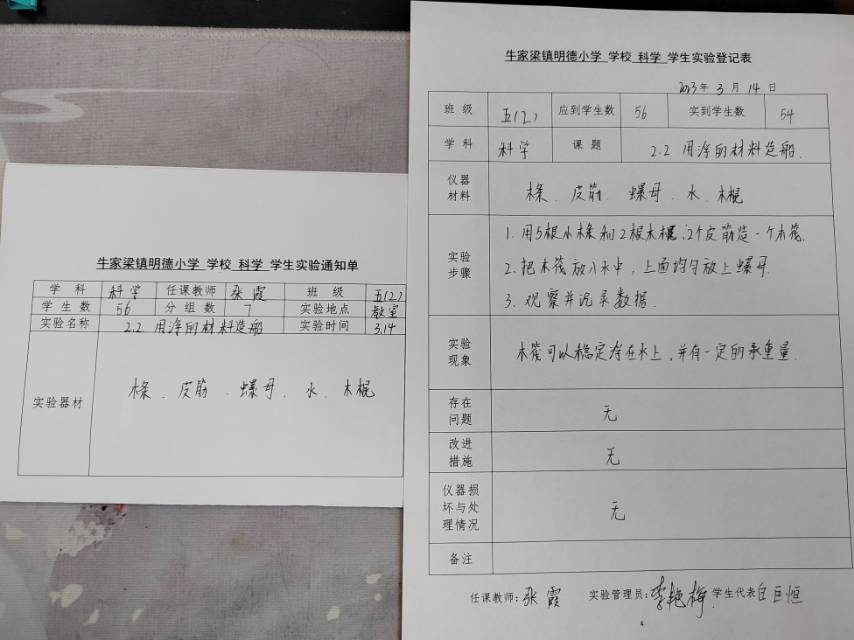 牛家梁镇明德小学 学校 科学 学生实验通知单
学 科 科学 任课教师 张霞 班 级 五(2)
学 生 数 56 分 组 数 7 实验地点 教室
实验名称 2.2 用浮的材料造船 实验时间 3.14
实验器材 木条 、皮筋 、螺母 、水 、木棍
牛家梁镇明德小学 学校 科学 学生实验登记表
2023年 3 月 14 日
班 级 五(2) 应到学生数 56 实到学生数 54
学 科 科学 课 题 2.2 用浮的材料造船.
仪器
材料
木条 、皮筋 、螺母 、水 、木棍
实验
步骤
1. 用5根小木条和2根木棍、2个皮筋造一个木筏.
2. 把木筏放入水中，上面均匀放上螺母.
3. 观察并记录数据.
实验
现象
木筏可以稳定浮在水上，并有一定的承重量.
存在
问题
无
改进
措施
无
仪器损
坏与处
理情况
无
备注
任课教师: 张霞 实验管理员: 李艳梅 学生代表 白巨恒